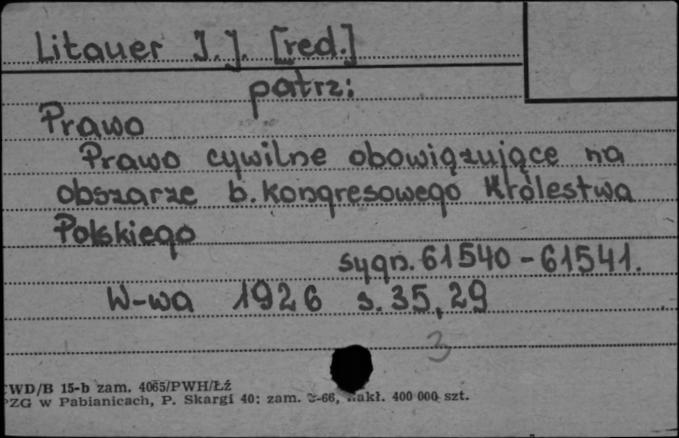 Litauer J.J. [red.]
patrz:
Prawo
Prawo cywilne obowiązujące na
obszarze b. Kongresowego Królestwa
Polskiego
sygn. 61540-61541.
W-wa 1926 s. 35, 29
3
WD/B 15-b zam. 4065/PWH/Łź
PZG w Pabianicach, P. Skargi 40; zam. -66, nakł. 400 000 szt.